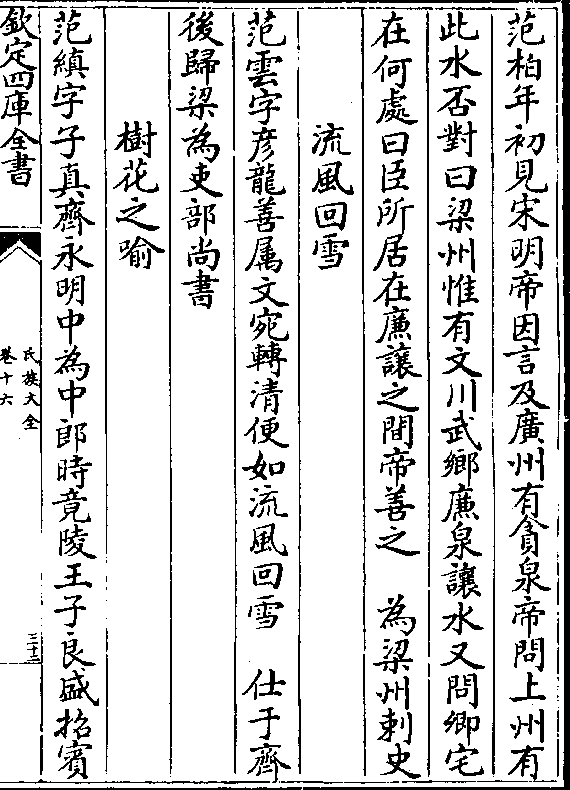 范柏年初見宋明帝因言及廣州有貪泉帝問上州有
此水否對曰梁州惟有文川武鄉廉泉讓水又問卿宅
在何處曰臣所居在廉讓之間帝善之　為梁州刺史
流風回雪
范雲字彦龍善属文宛轉清便如流風回雪　仕于齊
後歸梁為吏部尚書
樹花之喻
范縝字子真齊永明中為中郎時竟陵王子良盛招賓
欽定四庫全書
氏族大全
卷十六
三十二